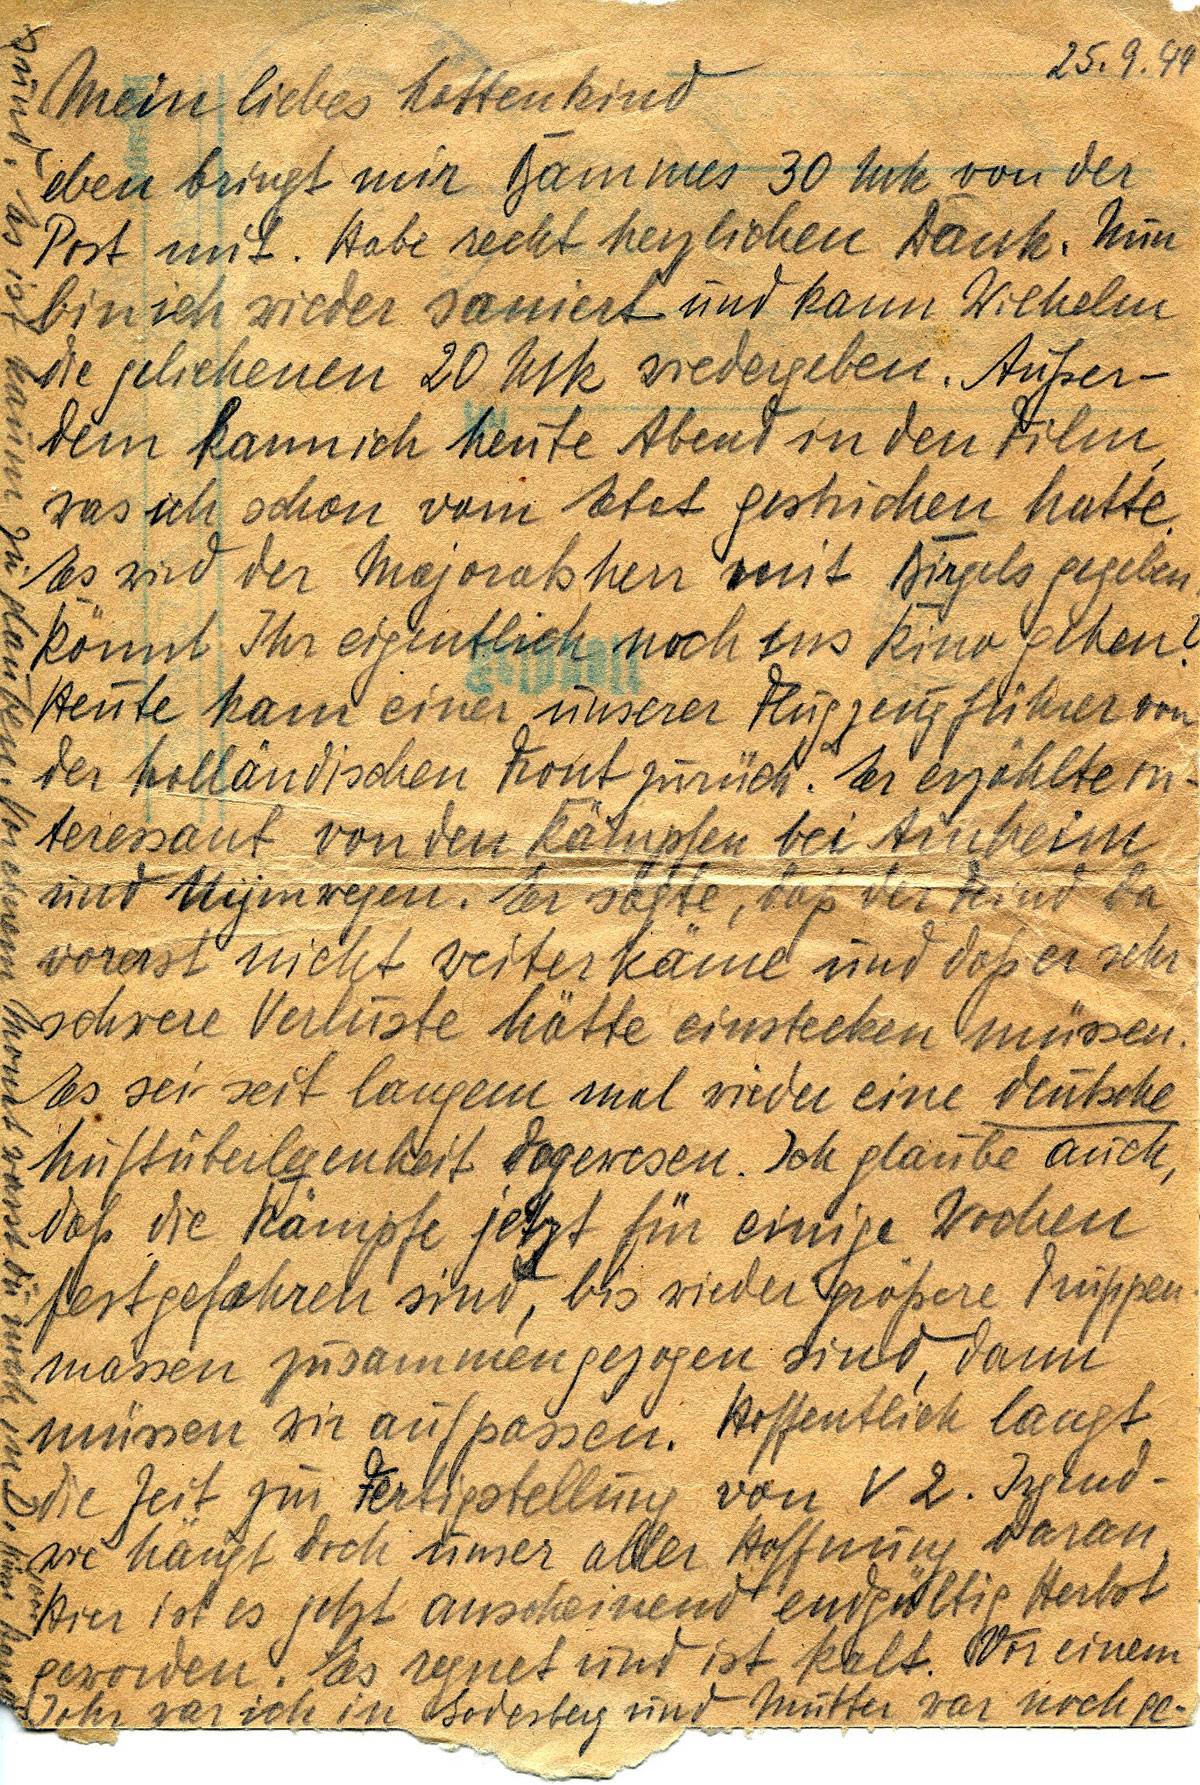 25.9.44
Mein liebes Lottenkind
eben bringt mir Bammes 30 Mk von der
Post mit. Habe recht herzlichen Dank. Nun
bin ich wieder saniert und kann Wilhelm
die geliehenen 20 Mk wiedergeben. Außer-
dem kann ich heute Abend in den Film,
was ich schon vom Etat gestrichen hatte.
Es wird der Majoratsherr mit Birgels gegeben
könnt Ihr eigentlich noch ins Kino gehen?
Heute kam einer unserer Flugzeugführer von
der holländischen Front zurück. Er erzählte in-
teressant von den Kämpfen bei Arnheim
und Nijmwegen. Er sagte, daß der Feind da
vorerst nicht weiterkäme und daß er sehr
schwere Verluste hätte einstecken müssen.
Es sei seit langem mal wieder eine deutsche
Luftüberlegenheit dagewesen. Ich glaube auch,
daß die Kämpfe jetzt für einige Wochen
festgefahren sind, bis wieder größere Truppen-
massen zusammengezogen sind, dann
müssen wir aufpassen. Hoffentlich langt
die Zeit zur Fertigstellung von V 2. Irgend-
wie hängt doch unser aller Hoffnung daran.
Hier ist es jetzt anscheinend endgültig Herbst
geworden. Es regnet und ist kalt. Vor einem
Jahr war ich in Godesberg und Mutter war noch ge-
sund. Es ist kaum zu glauben. Vor einem Monat warst du noch in D.
Feldpost